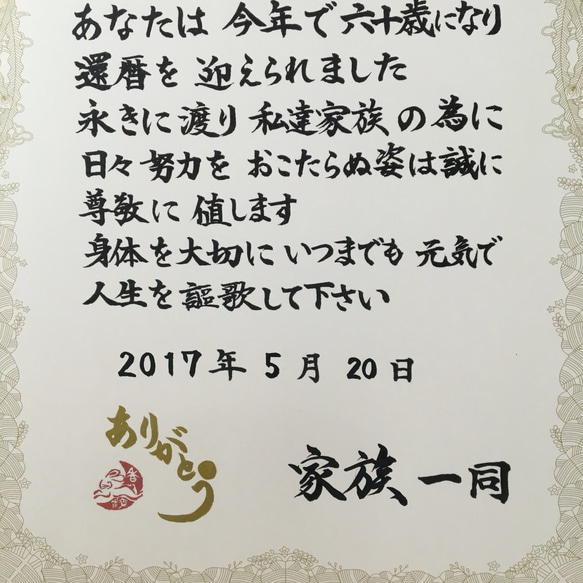 あなたは 今年で 六十歳になり
還暦を 迎えられました
永きに 渡り 私達家族 の 為に
日々 努力を おこたらぬ姿は誠に
尊敬に 値します
身体を大切に いつまでも 元気で
人生を 謳歌して下さい
2017 年 5 月 20 日
ありがとう
家族 一同